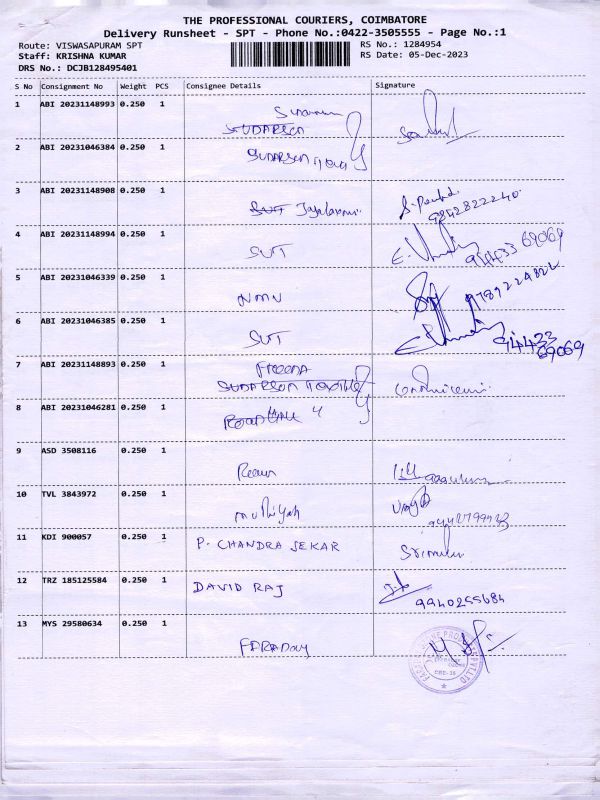 THE PROFESSIONAL COURIERS, COIMBATORE
Delivery Runsheet - SPT - Phone No.:0422-3505555 - Page No.:1
Route: VISWASAPURAM SPT RS No.: 1284954
Staff: KRISHNA KUMAR RS Date: 05-Dec-2023
DRS No.: DCJB128495401
S No Consignment No Weight PCS Consignee Details Signature
1 ABI 20231148993 0.250 1
SUDARSON
2 ABI 20231046384 0.250 1
SUDARSON
3 ABI 20231148908 0.250 1
SUT Jayalaxmi
9842822240
4 ABI 20231148994 0.250 1
SUT 94433 69069
5 ABI 20231046339 0.250 1
NMV
6 ABI 20231046385 0.250 1
SUT 94433
69069
7 ABI 20231148893 0.250 1
SUDARSON Textile
8 ABI 20231046281 0.250 1
9 ASD 3508116 0.250 1
10 TVL 3843972 0.250 1
Muthiyah
11 KDI 900057 0.250 1
P. CHANDRA SEKAR
12 TRZ 185125584 0.250 1
DAVID RAJ 9940255684
13 MYS 29580634 0.250 1
FARADAY